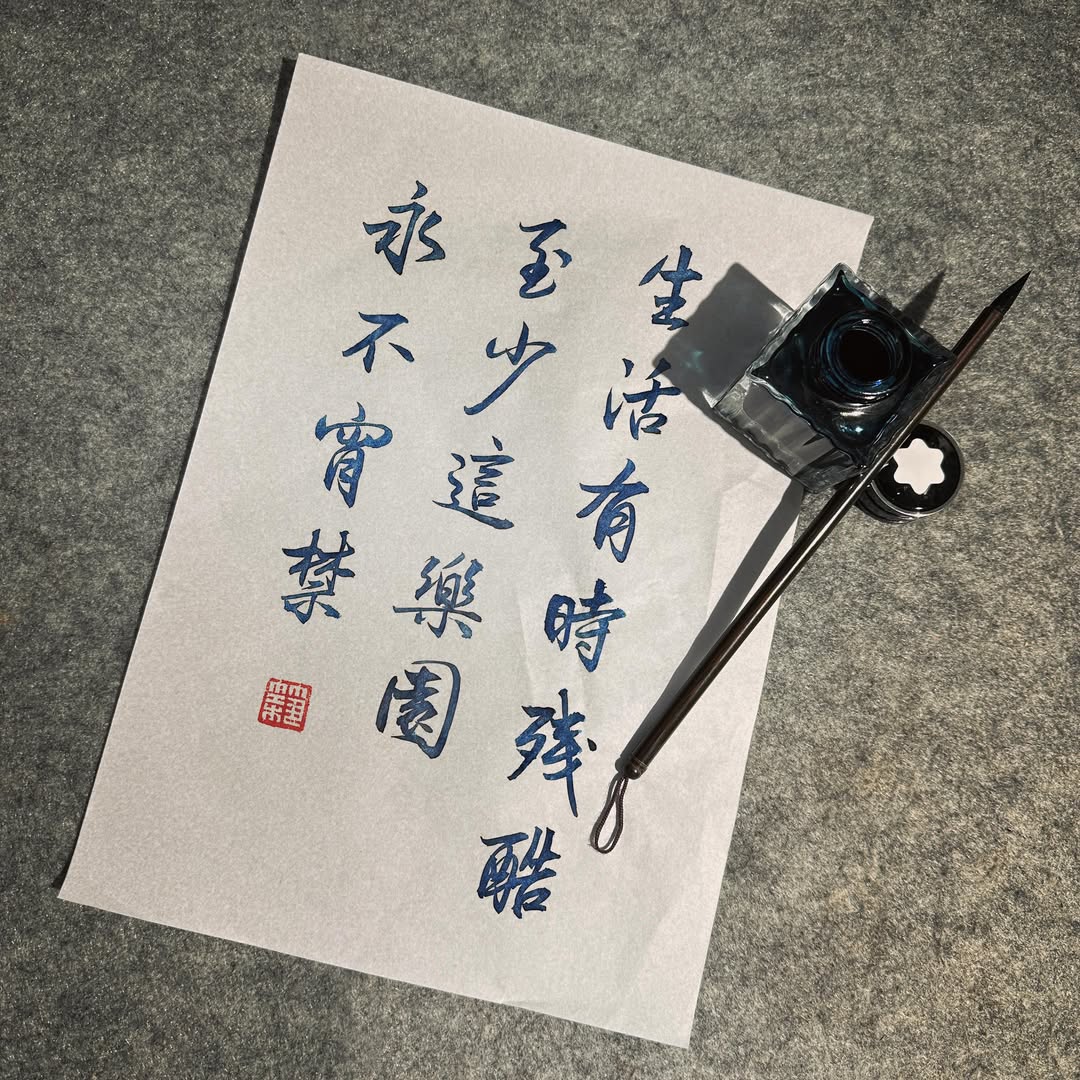 生活有時残酷
至少這樂園
永不宵禁